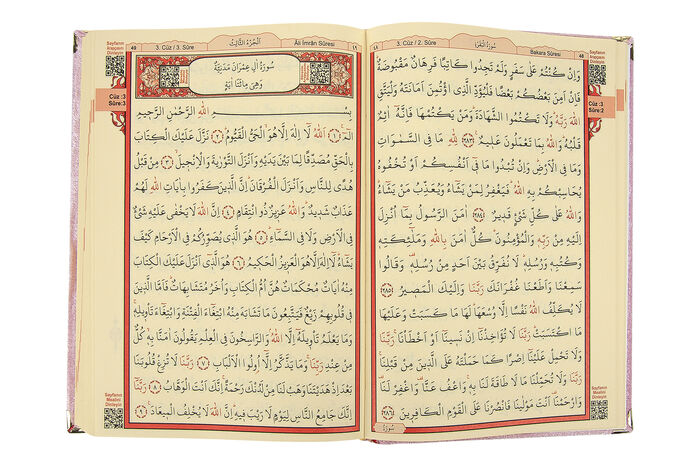 ١٨
3. Cüz / 2. Sûre
سُورَةُ الْبَقَرَةِ
Bakara Sûresi
48
Sayfanın
Arapçasını
Dinleyin
Cüz :3
Sûre:2
وَاِنْ كُنْتُمْ عَلٰى سَفَرٍ وَلَمْ تَجِدُوا كَاتِبًا فَرِهَانٌ مَقْبُوضَةٌ
فَاِنْ اَمِنَ بَعْضُكُمْ بَعْضًا فَلْيُؤَدِّ الَّذِي اؤْتُمِنَ اَمَانَتَهُ وَلْيَتَّقِ
اللّٰهَ رَبَّهُ وَلَا تَكْتُمُوا الشَّهَادَةَ وَمَنْ يَكْتُمْهَا فَاِنَّهُ اٰثِمٌ
قَلْبُهُ وَاللّٰهُ بِمَا تَعْمَلُونَ عَلِيمٌ ﴿٢٨٣﴾ لِلّٰهِ مَا فِي السَّمٰوَاتِ
وَمَا فِي الْاَرْضِ وَاِنْ تُبْدُوا مَا فِي اَنْفُسِكُمْ اَوْ تُخْفُوهُ
يُحَاسِبْكُمْ بِهِ اللّٰهُ فَيَغْفِرُ لِمَنْ يَشَاءُ وَيُعَذِّبُ مَنْ يَشَاءُ
وَاللّٰهُ عَلٰى كُلِّ شَيْءٍ قَدِيرٌ ﴿٢٨٤﴾ اٰمَنَ الرَّسُولُ بِمَا اُنْزِلَ
اِلَيْهِ مِنْ رَبِّهِ وَالْمُؤْمِنُونَ كُلٌّ اٰمَنَ بِاللّٰهِ وَمَلٰئِكَتِهِ
وَكُتُبِهِ وَرُسُلِهِ لَا نُفَرِّقُ بَيْنَ اَحَدٍ مِنْ رُسُلِهِ وَقَالُوا
سَمِعْنَا وَاَطَعْنَا غُفْرَانَكَ رَبَّنَا وَاِلَيْكَ الْمَصِيرُ ﴿٢٨٥﴾
لَا يُكَلِّفُ اللّٰهُ نَفْسًا اِلَّا وُسْعَهَا لَهَا مَا كَسَبَتْ وَعَلَيْهَا
مَا اكْتَسَبَتْ رَبَّنَا لَا تُؤَاخِذْنَا اِنْ نَسِينَا اَوْ اَخْطَأْنَا رَبَّنَا
وَلَا تَحْمِلْ عَلَيْنَا اِصْرًا كَمَا حَمَلْتَهُ عَلَى الَّذِينَ مِنْ قَبْلِنَا
رَبَّنَا وَلَا تُحَمِّلْنَا مَا لَا طَاقَةَ لَنَا بِهِ وَاعْفُ عَنَّا وَاغْفِرْ لَنَا
وَارْحَمْنَا اَنْتَ مَوْلٰينَا فَانْصُرْنَا عَلَى الْقَوْمِ الْكَافِرِينَ ﴿٢٨٦﴾
سُورَةُ
Sayfanın
Mealini
Dinleyin
49
3. Cüz / 3. Sûre
اَلْجُزْءُ الثَّالِثُ
Âli İmrân Sûresi
١٩
Sayfanın
Arapçasını
Dinleyin
Cüz :3
Sûre:3
سُورَةُ اٰلِ عِمْرَانَ مَدَنِيَّةٌ
وَهِيَ مِائَتَا اٰيَةٍ
بِسْمِ اللّٰهِ الرَّحْمٰنِ الرَّحِيمِ
الٓمٓ ﴿١﴾ اَللّٰهُ لَا اِلٰهَ اِلَّا هُوَ الْحَيُّ الْقَيُّومُ ﴿٢﴾ نَزَّلَ عَلَيْكَ الْكِتَابَ
بِالْحَقِّ مُصَدِّقًا لِمَا بَيْنَ يَدَيْهِ وَاَنْزَلَ التَّوْرٰيةَ وَالْاِنْجِيلَ ﴿٣﴾ مِنْ قَبْلُ
هُدًى لِلنَّاسِ وَاَنْزَلَ الْفُرْقَانَ اِنَّ الَّذِينَ كَفَرُوا بِاٰيَاتِ اللّٰهِ لَهُمْ
عَذَابٌ شَدِيدٌ وَاللّٰهُ عَزِيزٌ ذُو انْتِقَامٍ ﴿٤﴾ اِنَّ اللّٰهَ لَا يَخْفٰى عَلَيْهِ شَيْءٌ
فِي الْاَرْضِ وَلَا فِي السَّمَاءِ ﴿٥﴾ هُوَ الَّذِي يُصَوِّرُكُمْ فِي الْاَرْحَامِ كَيْفَ
يَشَاءُ لَا اِلٰهَ اِلَّا هُوَ الْعَزِيزُ الْحَكِيمُ ﴿٦﴾ هُوَ الَّذِي اَنْزَلَ عَلَيْكَ الْكِتَابَ
مِنْهُ اٰيَاتٌ مُحْكَمَاتٌ هُنَّ اُمُّ الْكِتَابِ وَاُخَرُ مُتَشَابِهَاتٌ فَاَمَّا الَّذِينَ
فِي قُلُوبِهِمْ زَيْغٌ فَيَتَّبِعُونَ مَا تَشَابَهَ مِنْهُ ابْتِغَاءَ الْفِتْنَةِ وَابْتِغَاءَ تَأْوِيلِهِ
وَمَا يَعْلَمُ تَأْوِيلَهُ اِلَّا اللّٰهُ وَالرَّاسِخُونَ فِي الْعِلْمِ يَقُولُونَ اٰمَنَّا بِهِ كُلٌّ
مِنْ عِنْدِ رَبِّنَا وَمَا يَذَّكَّرُ اِلَّا اُولُوا الْاَلْبَابِ ﴿٧﴾ رَبَّنَا لَا تُزِغْ قُلُوبَنَا
بَعْدَ اِذْ هَدَيْتَنَا وَهَبْ لَنَا مِنْ لَدُنْكَ رَحْمَةً اِنَّكَ اَنْتَ الْوَهَّابُ ﴿٨﴾ رَبَّنَا
اِنَّكَ جَامِعُ النَّاسِ لِيَوْمٍ لَا رَيْبَ فِيهِ اِنَّ اللّٰهَ لَا يُخْلِفُ الْمِيعَادَ ﴿٩﴾
Sayfanın
Mealini
Dinleyin